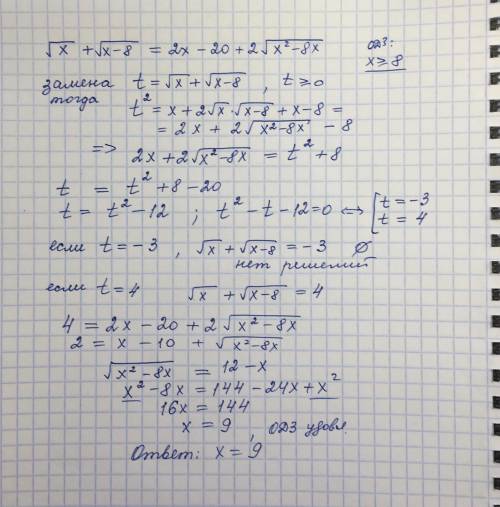 √x + √x-8 = 2x - 20 + 2√x²-8x
ОДЗ:
x ≥ 8
замена t = √x + √x-8 , t ≥ 0
тогда
t² = x + 2√x · √x-8 + x - 8 =
= 2x + 2√x²-8x - 8
=> 2x + 2√x²-8x = t² + 8
t = t² + 8 - 20
t = t² - 12 ; t² - t - 12 = 0 <=> [ t = -3
t = 4
если t = -3 , √x + √x-8 = -3 ∅
нет решений
если t = 4 √x + √x-8 = 4
4 = 2x - 20 + 2√x²-8x
2 = x - 10 + √x²-8x
√x²-8x = 12 - x
x² - 8x = 144 - 24x + x²
16x = 144
x = 9 , ОДЗ удовл.
Ответ: x = 9